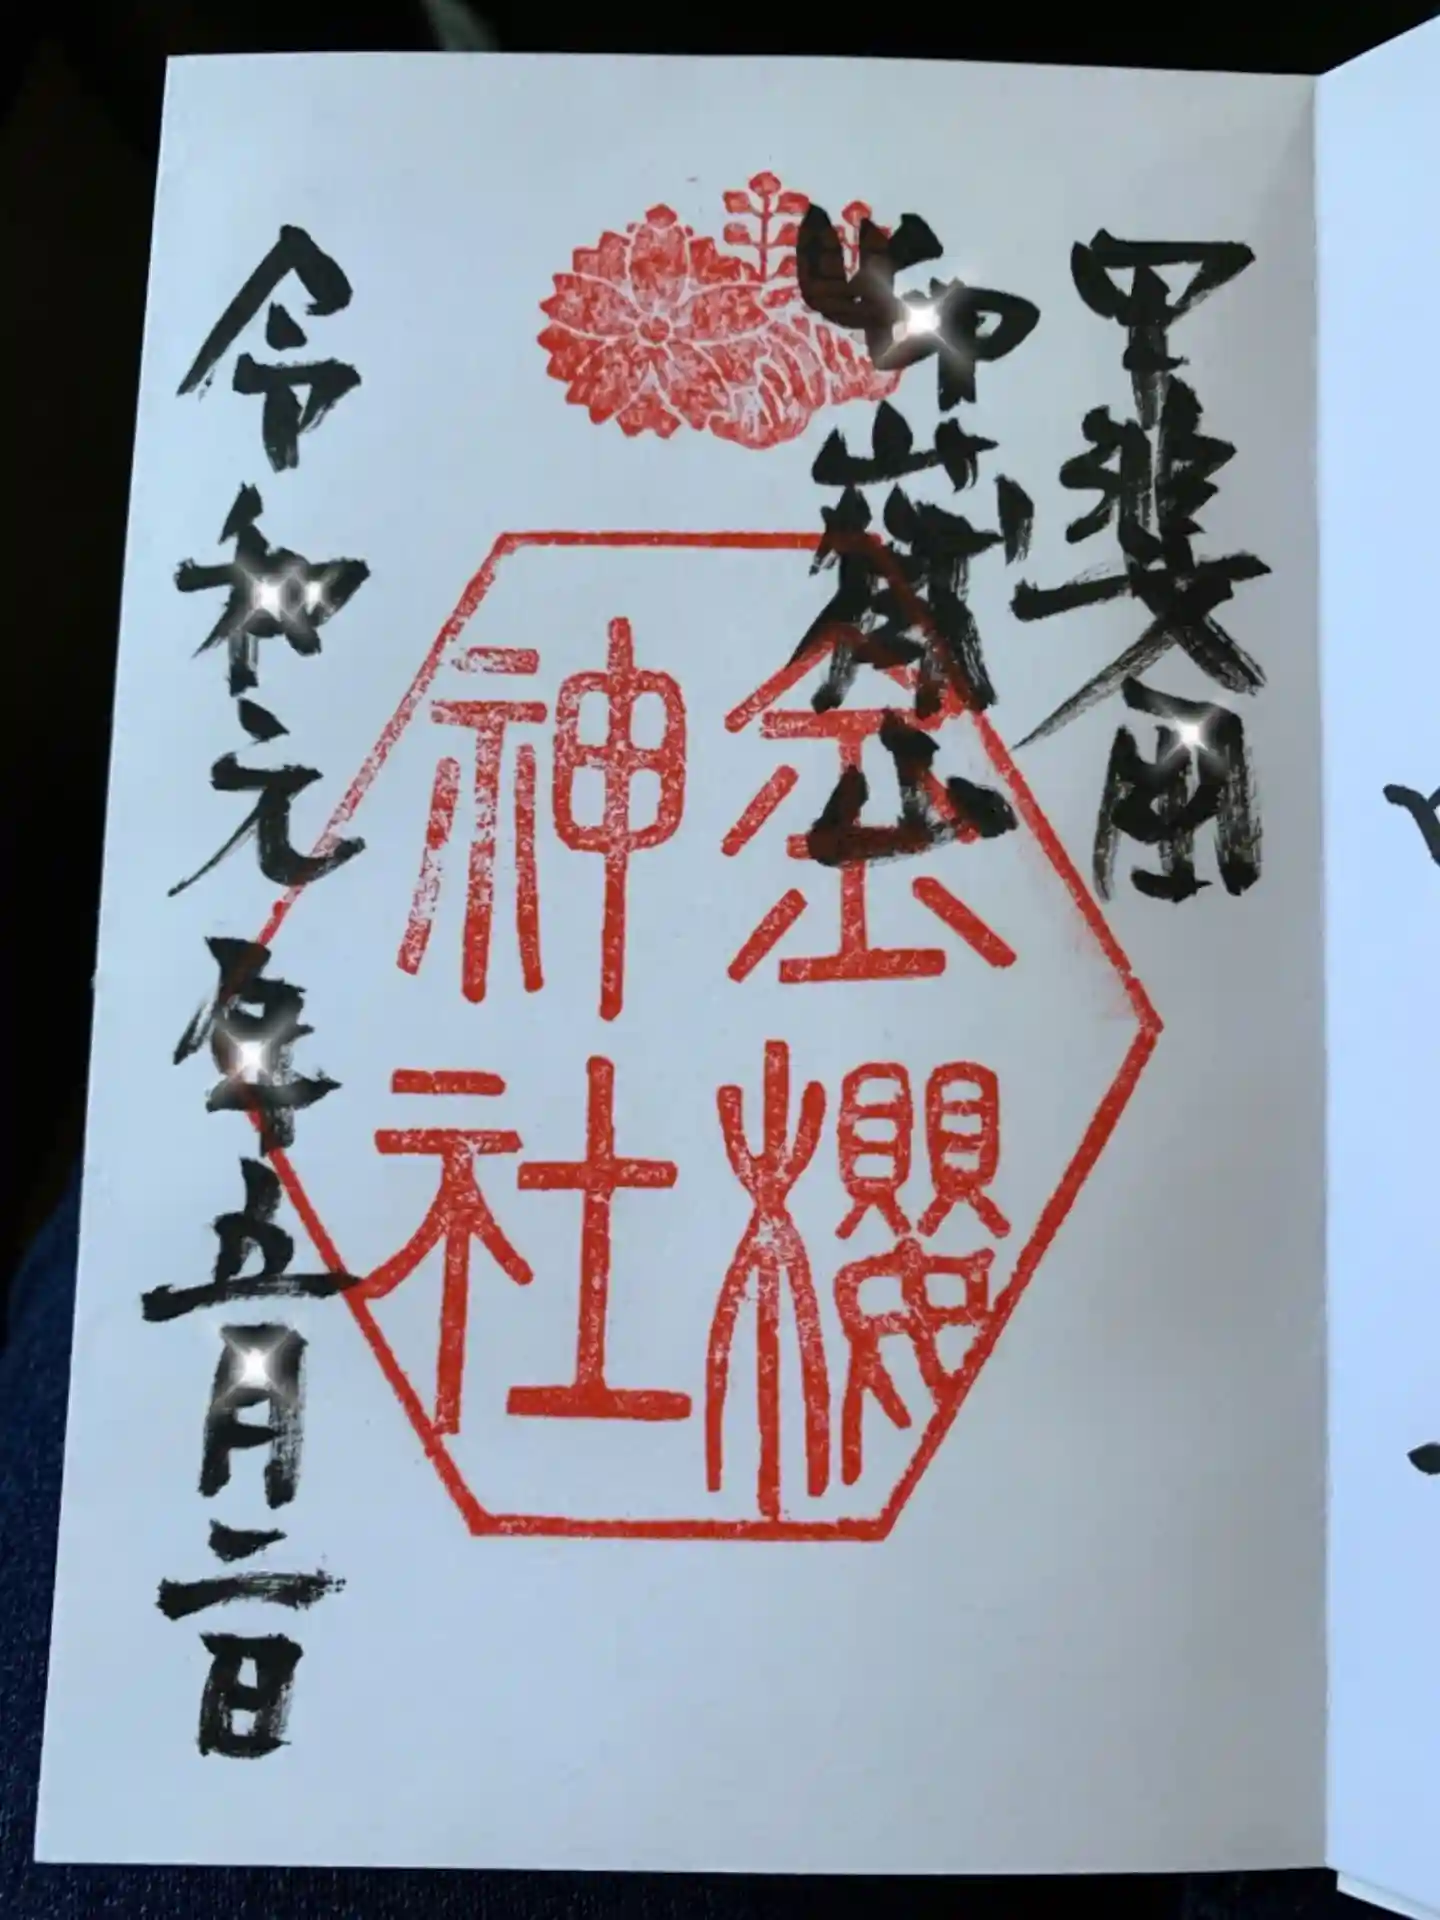 甲斐国
御嶽山
金櫻
神社
令和元年五月二日